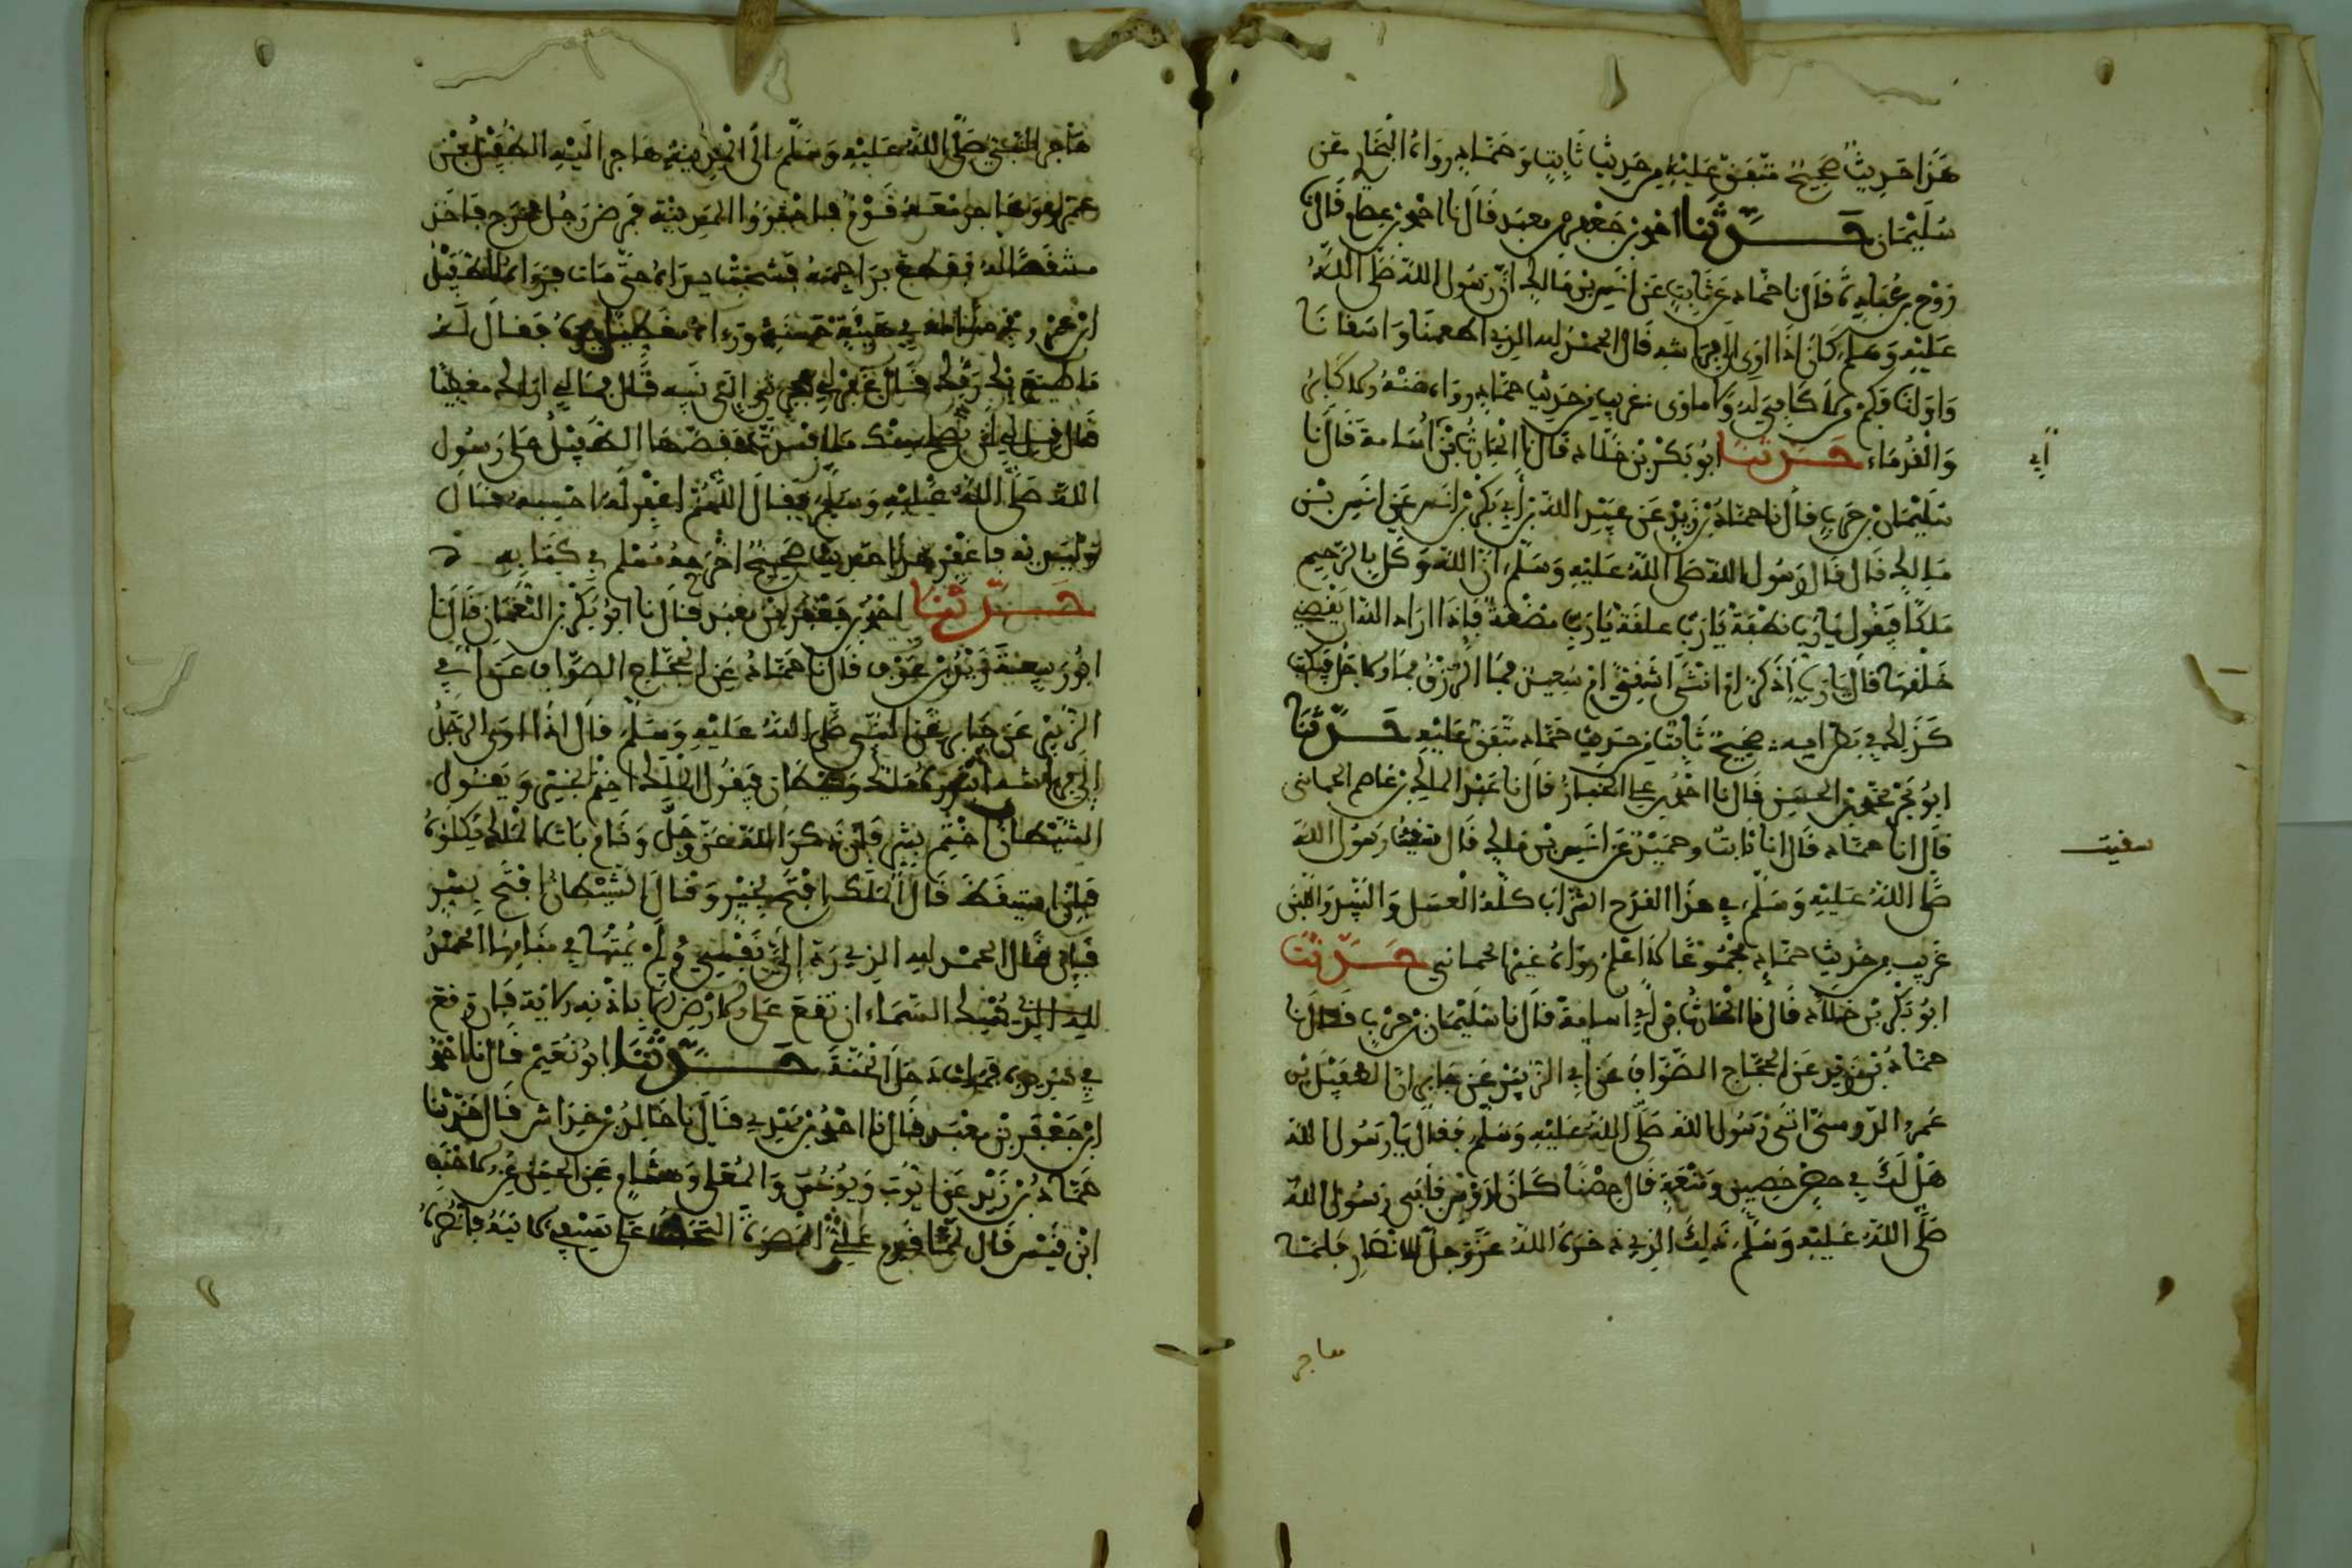 هذا حديث صحيح متفق عليه من حديث ثابت وحماد رواه البخاري عن
سليمان حدثنا احمد بن جعفر بن معبد قال نا احمد بن عصام قال نا
روح بن عبادة قال نا حماد عن ثابت عن انس بن مالك ان رسول الله صلى الله
عليه وسلم كان اذا اوى الى فراشه قال الحمد لله الذي اطعمنا وسقانا
واوانا فكم ممن لا كافي له ولا ماوى غريب من حديث حماد رواه عنه الاكابر
والقدماء حدثنا ابو بكر بن خلاد قال نا الحارث بن اسامة قال نا
ابي
سليمان بن حرب قال نا حماد بن زيد عن عبيد الله بن ابي بكر بن انس عن انس بن
مالك قال قال رسول الله صلى الله عليه وسلم ان الله وكل بالرحم
ملكا فيقول يارب نطفة يارب علقة يارب مضغة فاذا اراد الله ان يقضي
خلقها قال يارب اذكر ام انثى اشقي ام سعيد فما الرزق فما الاجل فيكتب
كذلك في بطن امه صحيح ثابت من حديث حماد متفق عليه حدثنا
ابو بحر محمد بن الحسن قال نا احمد بن علي الخزاز قال نا عبد الملك بن عاصم الحماني
قال نا حماد قال نا ثابت وحميد عن انس بن مالك قال سقيت رسول الله
سقيت
صلى الله عليه وسلم في هذا القدح الشراب كله العسل والنبيذ واللبن
غريب من حديث حماد مجموعا لا اعلم رواه غير الحماني حدثنا
ابو بكر بن خلاد قال نا الحارث بن ابي اسامة قال نا سليمان بن حرب قال نا
حماد بن زيد عن الحجاج الصواف عن ابي الزبير عن جابر ان الطفيل بن
عمرو الدوسي اتى رسول الله صلى الله عليه وسلم فقال يا رسول الله
هل لك في حصن حصين ومنعة قال حصنا كان لدوس فابى رسول الله
صلى الله عليه وسلم ذلك الذي ذخره الله عز وجل للانصار فلما
هاجر
هاجر النبي صلى الله عليه وسلم الى المدينة هاجر اليه الطفيل بن
عمرو وهاجر معه قوم فاجتووا المدينة فمرض رجل فجزع فاخذ
مشقصا له فقطع براجمه فشخبت يداه حتى مات فرءاه الطفيل
ابن عمرو في منامه في هيئة حسنة ورءاه مغطيا يديه فقال له
ما صنع بك ربك قال غفر لي بهجرتي الى نبيه قال فما لي اراك مغطيا
قال قيل لي لن نصلح منك ما افسدت فقصها الطفيل على رسول
الله صلى الله عليه وسلم فقال اللهم اغفر له احسبه قال
وليديه فاغفر هذا حديث صحيح اخرجه مسلم في كتابه
حدثنا احمد بن جعفر بن معبد قال نا ابو بكر بن النعمان قال نا
ابو ربيعة زيد بن عوف قال نا حماد عن الحجاج الصواف عن ابي
الزبير عن جابر عن النبي صلى الله عليه وسلم قال اذا اوى الرجل
الى فراشه ابتدره ملك وشيطان فيقول الملك اختم بخير ويقول
الشيطان اختم بشر فان ذكر الله عز وجل ونام بات الملك يكلؤه
فاذا استيقظ قال الملك افتح بخير وقال الشيطان افتح بشر
فان قال الحمد لله الذي رد الي نفسي ولم يمتها في منامها الحمد
لله الذي يمسك السماء ان تقع على الارض الا باذنه الاية فان وقع
في سريره فمات دخل الجنة حدثنا ابو نعيم قال نا احمد
ابن جعفر بن معبد قال نا احمد بن مهدي قال نا خالد بن خداش قال حدثنا
حماد بن زيد عن ايوب ويونس والمعلى وهشام عن الحسن عن الاحنف
ابن قيس قال لما قدم علي البصرة التحفت على سيفي لاتيه فانصره